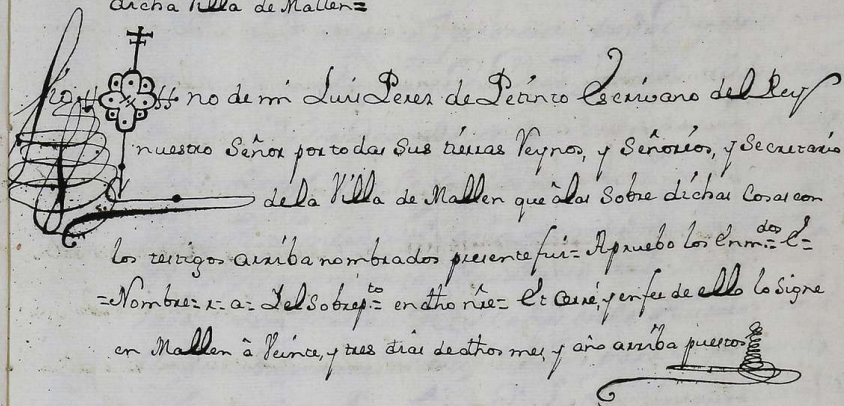 dicha Villa de Mallen=
Sig no de mi Luis Perez de Petinto Escrivano del Rey
nuestro Señor por todas sus tierras Reynos, y Señoríos, y Secretario
de la Villa de Mallen que â las Sobre dichas Cosas con
los testigos arriba nombrados presente fui= Apruebo los Enm.dos= E=
=Nombre= r= a= Del Sobrep.to= en dho nre= Et cerré, y en fee de ello lo Signe
en Mallen â Veinte, y tres dias de dhos mes, y año arriba puestos